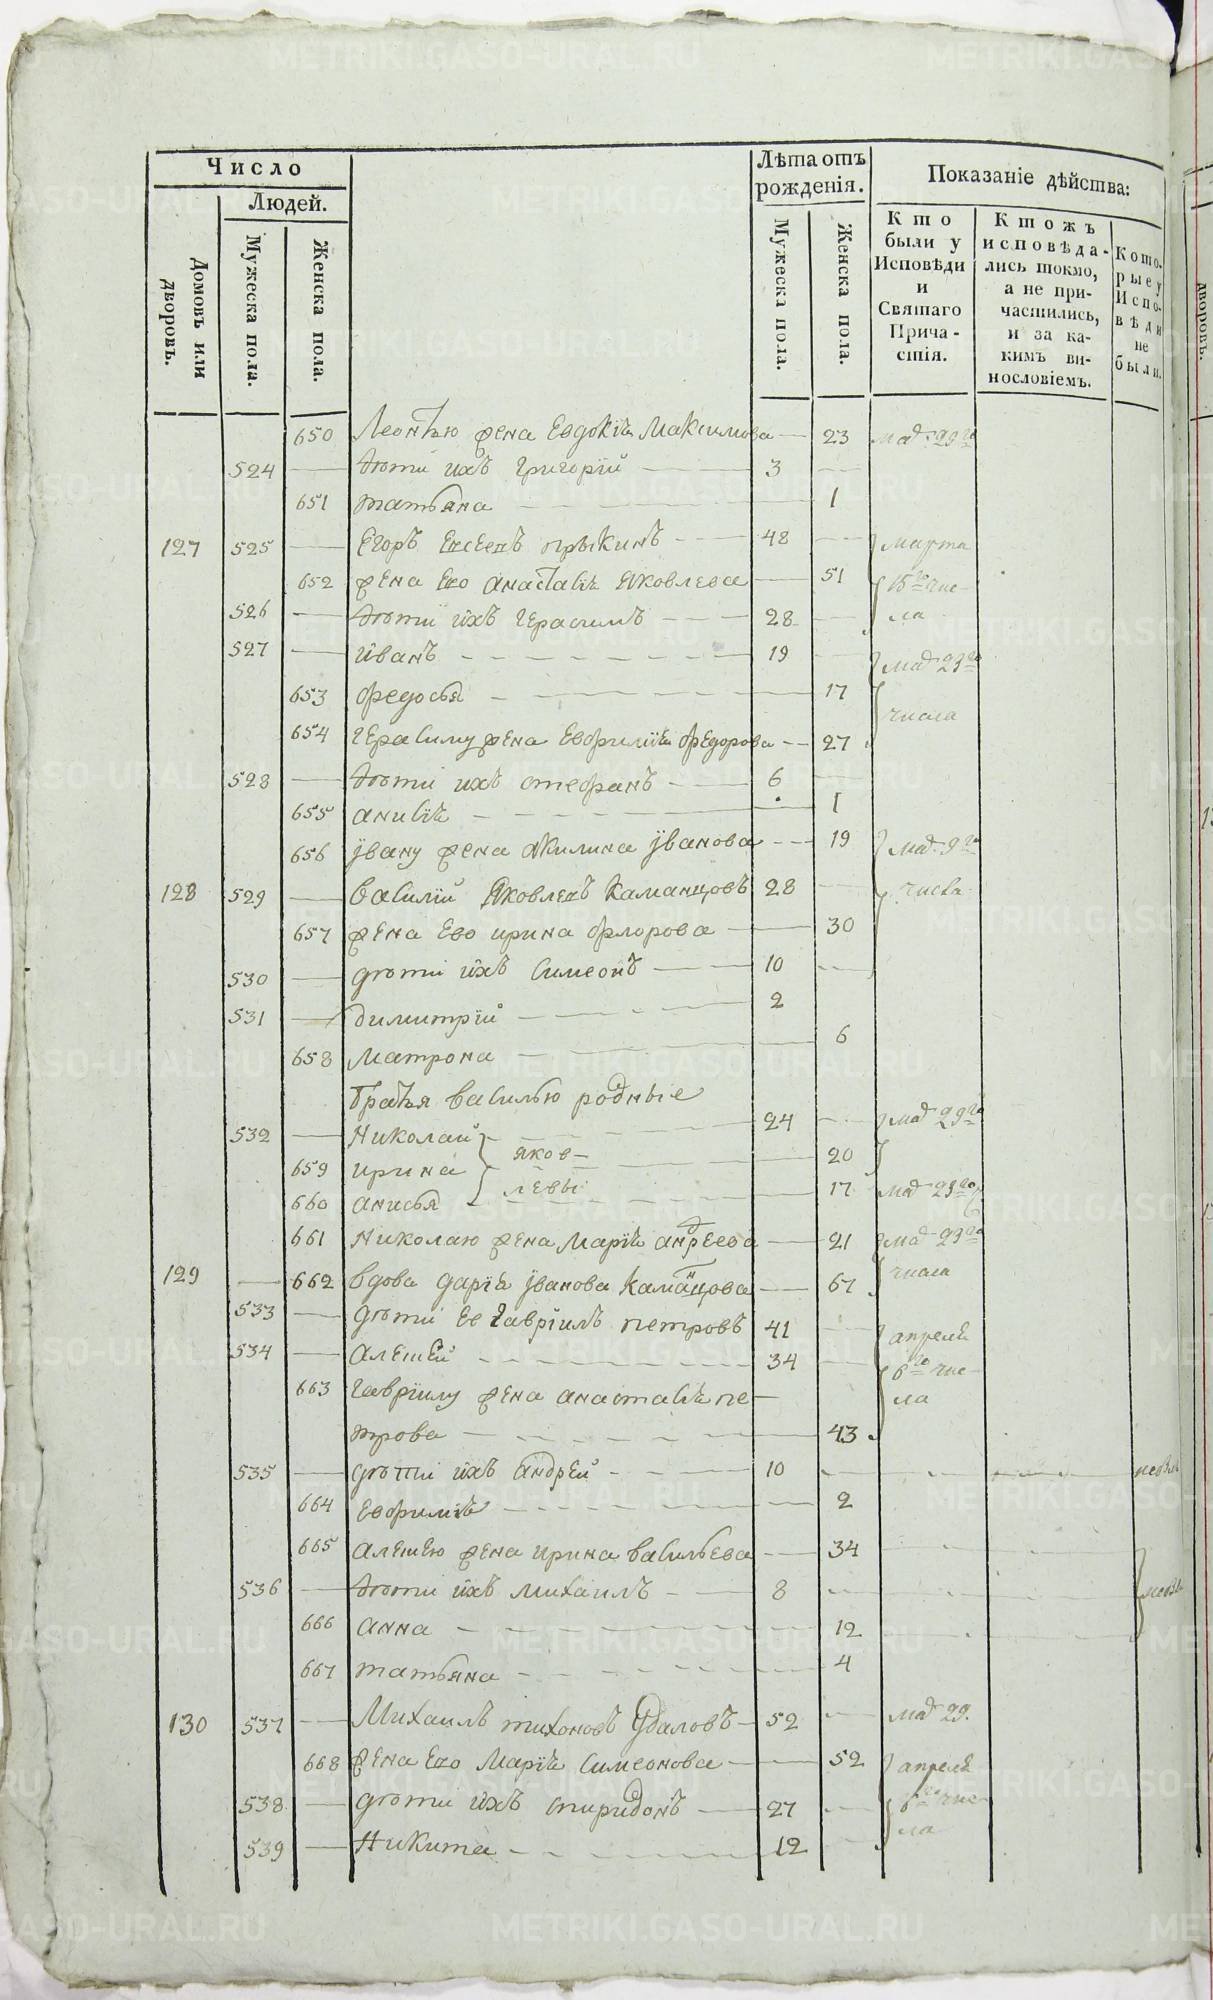 Число
Людей.
Домовъ или дворовъ.
Мужеска пола.
Женска пола.
Лѣта отъ рожденія.
Мужеска пола.
Женска пола.
Показаніе дѣйства:
Кто были у Исповѣди и Святаго Причастія.
Ктожъ исповѣдались токмо, а не причастились, и за какимъ винословіемъ.
Которые у Исповѣди не были.
650 Леонтью жена Евдокія Максимова 23 маѧ 29го
524 дѣти ихъ Григорій 3
651 татьяна 1
127 525 Егоръ Евсеевъ 48 марта
652 жена Ево анастасія Яковлева 51 15го чис-
526 дѣти ихъ Герасимъ 28 ла
527 иванъ 19 23го
653 федосья 17 числа
654 герасиму жена Евфимія федорова 27
528 дѣти ихъ стефанъ 6
655 анисія 1
656 ївану жена Акилина їванова 19 9го
128 529 василій Яковлевъ Каманцовъ 28 числа
657 жена Ево ирина флорова 30
530 дѣти ихъ Симеонъ 10
531 димитрій 2
658 Матрона 6
братья василью родные
532 Николай 24 29го
659 ирина яков- 20
660 анисья левы 17 23го
661 Николаю жена Марія андреева 21 23го
129 662 вдова дарія їванова Каманцова 67 числа
533 дѣти Ее гавріилъ петровъ 41 апреля
534 алексей 34 6го чис-
663 гаврїилу жена анастасія пе- ла
трова 43
535 дѣти ихъ андрей 10
664 Евфимія 2
665 алексею жена ирина васильева 34
536 дѣти ихъ михаилъ 8
666 анна 12
667 татьяна 4
130 537 Михаилъ тихоновъ Удаловъ 52 29.
668 жена Ево Марія Симеонова 52 апреля
538 дѣти ихъ спиридонъ 27 6го чис-
539 Никита 12 ла
METRIKI.GASO-URAL.RU